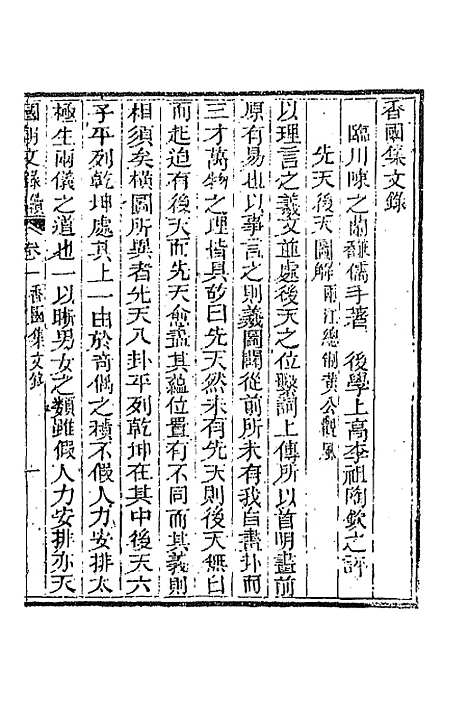 香國集文錄
臨川陳之蘭馥儒手著　後學上高李祖陶欽之評
先天後天圖解兩江總制黃公觀風
以理言之羲文並處後天之位繫詞上傳所以首明畫前
原有易也以事言之則羲圖闢從前所未有我自畫卦而
三才萬物之理皆具故曰先天然未有先天則後天無白
而起迨有後天而先天愈諡其蘊位置有不同而其義則
相須矣橫圖所異者先天八卦平列乾坤在其中後天六
子平列乾坤處其上一由於奇偶之積不假人力安排太
極生兩儀之道也一以晰男女之類雖假人力安排亦天
國朝文錄續　卷一　香國集文錄　一